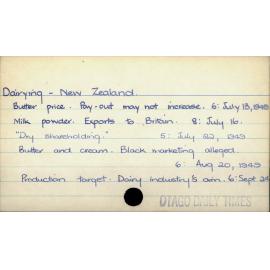 Dairying - New Zealand.
Butter price. Pay-out may not increase. 6: July 13, 1949
Milk powder. Exports to Britain. 8: July 16.
"Dry shareholding." 5: July 22, 1949
Butter and cream. Black marketing alleged.
6: Aug 20, 1949
Production target. Dairy industry's aim. 6: Sept 24
OTAGO DAILY TIMES